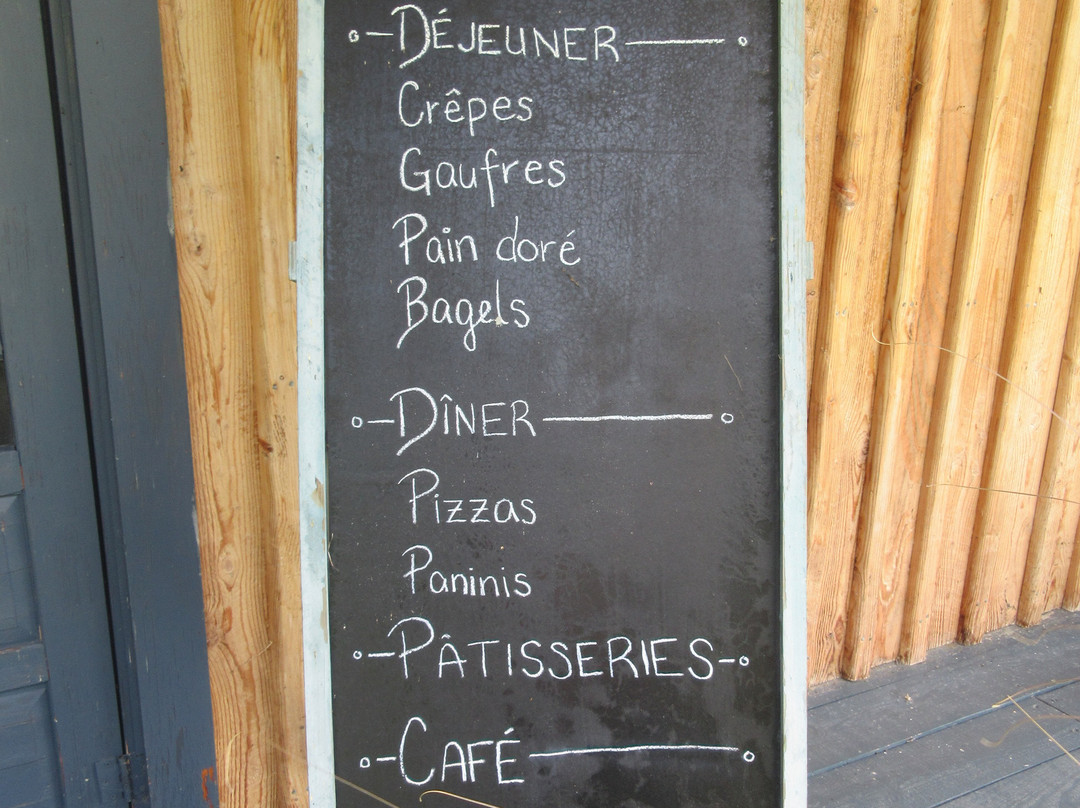 DÉJEUNER
Crêpes
Gaufres
Pain doré
Bagels
DÎNER
Pizzas
Paninis
PÂTISSERIES
CAFÉ